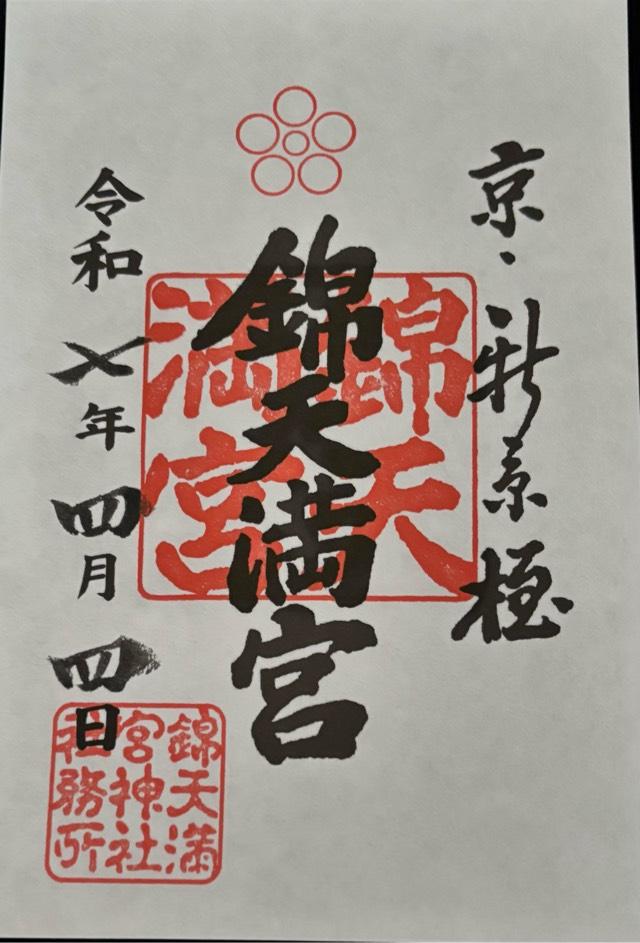 京・新京極
錦天満宮
錦天
満宮
令和七年四月四日
錦天満
宮神社
社務所